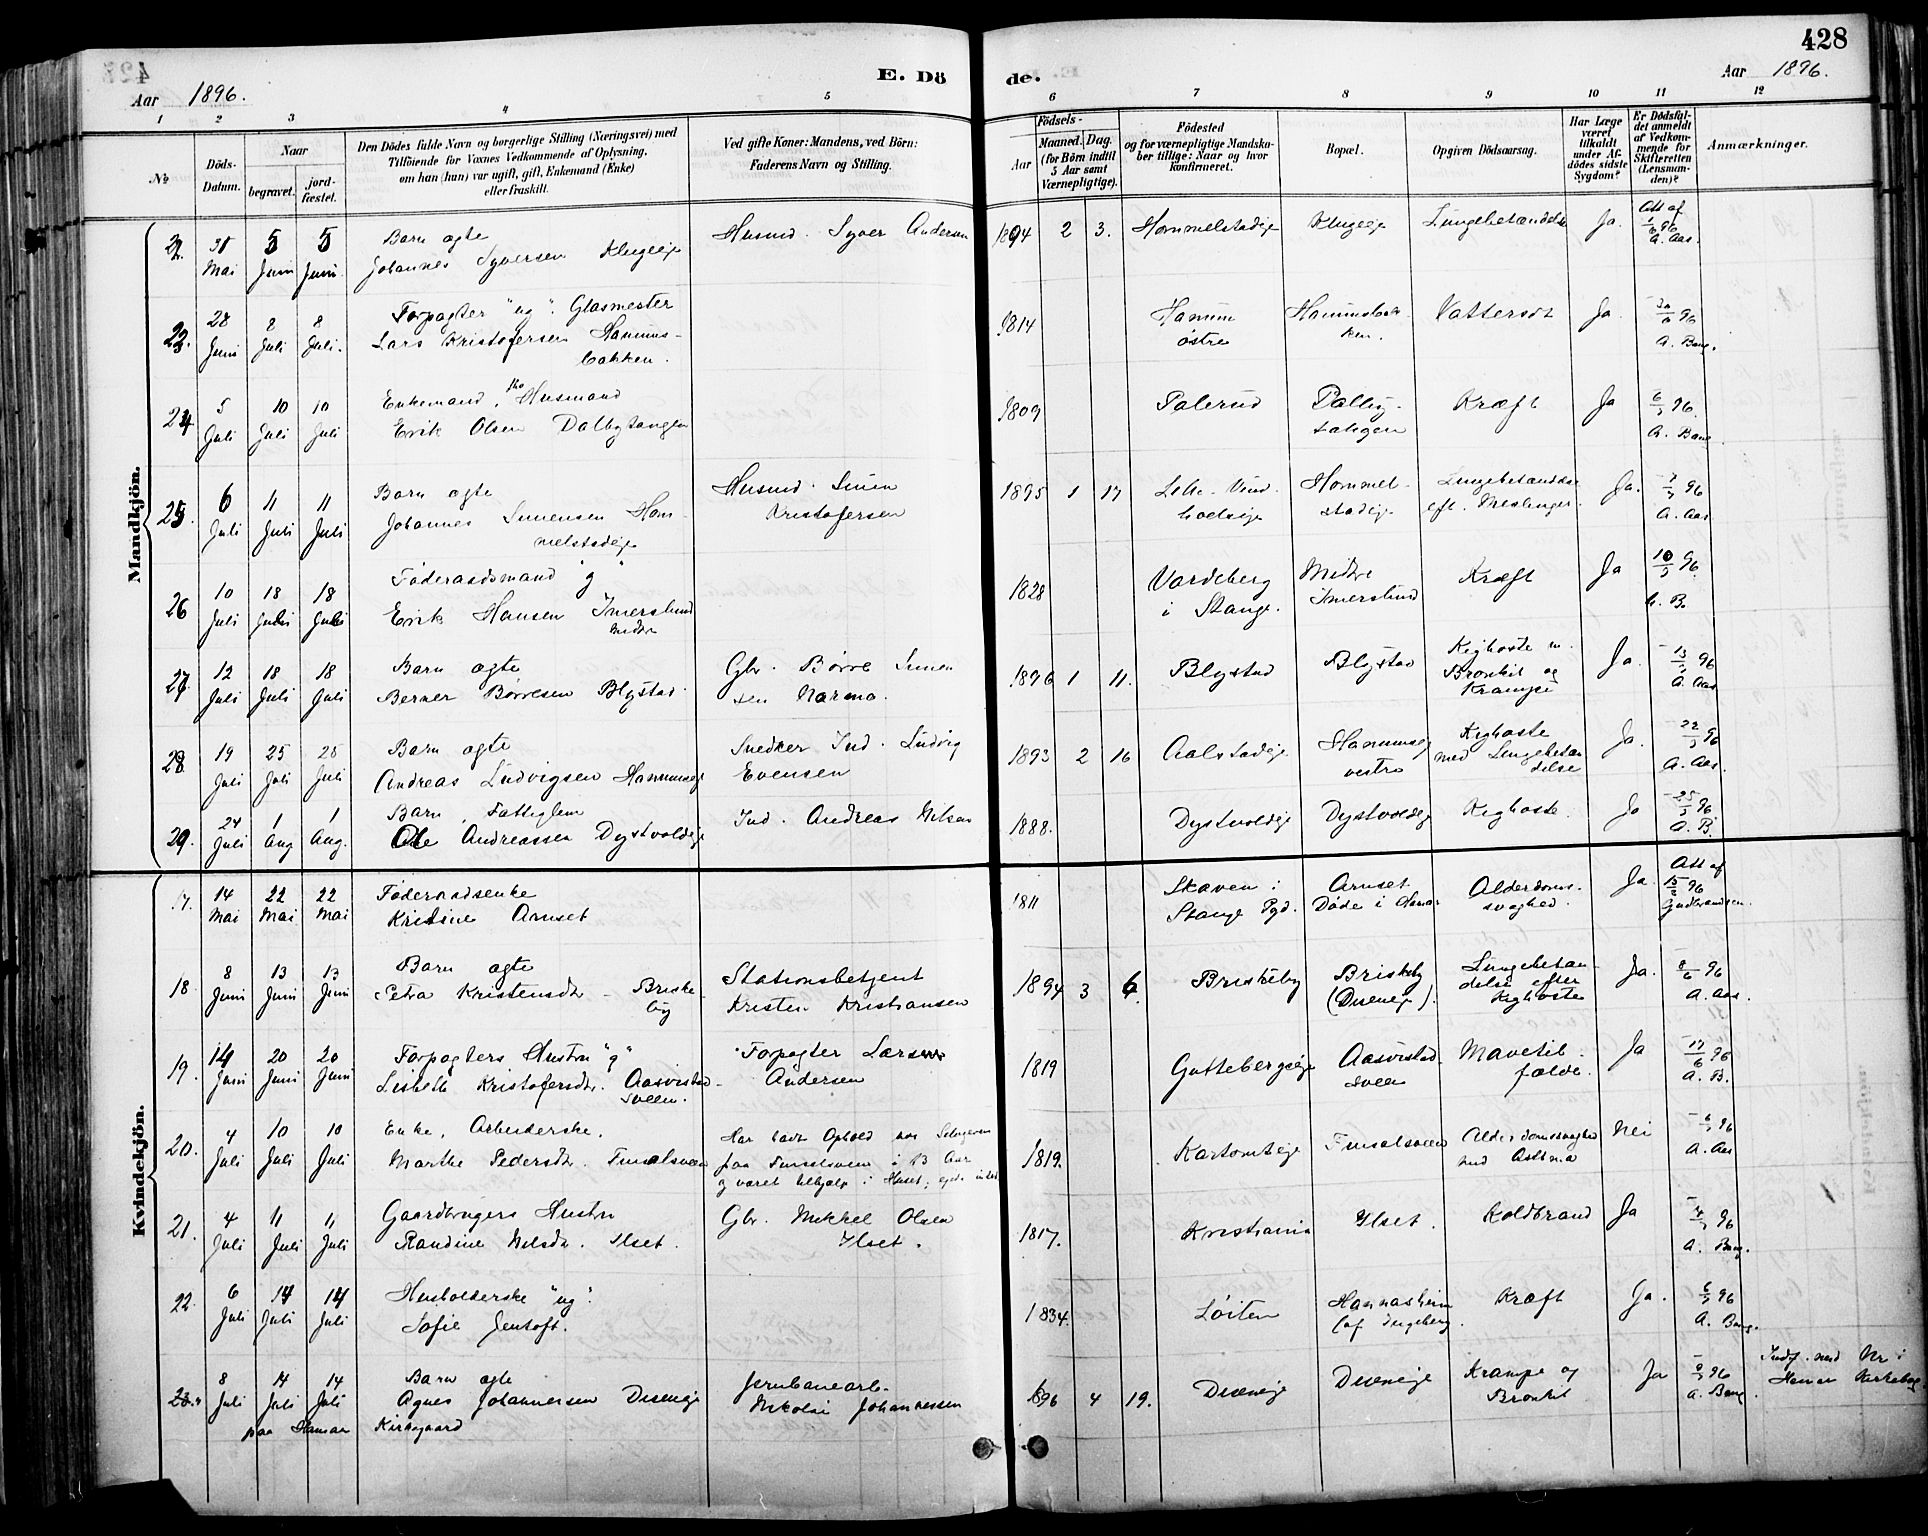 428
E. Dö de.
Aar 1896.
Aar 1896.
1 2 3 4 5 6 7 8 9 10 11 12
№
Döds-Datum.
Naar
begravet.
jordfæstet.
Den Dödes fulde Navn og borgerlige Stilling (Næringsvei) med
Tilföiende for Voxnes Vedkommende af Oplysning,
om han (hun) var ugift, gift, Enkemand (Enke)
eller fraskilt.
Ved gifte Koner: Mandens, ved Börn:
Faderens Navn og Stilling.
Födsels-
Aar
Maaned. Dag.
(for Börn indtil
5 Aar samt
Værnepligtige).
Födested
og for værnepligtige Mandskaber tillige: Naar og hvor
konfirmeret.
Bopæl.
Opgiven Dödsaarsag.
Har Læge
været
tilkaldt
under Afdödes sidste
Sygdom?
Er Dödsfaldet anmeldt
af Vedkommende for
Skifteretten
(Lensmanden)?
Anmærkninger.
Mandkjön.
22. 31 Mai 5 Juni 5 Juni. Barn ægte
Johannes Syversen Klugeije Husmd. Syver Andersen 1894 2 3. Hommelstadeje Klugeje Lungebetændelse Ja. Att af
A. Aas.
23. 28 Juni 8 Juli 8 Juli. Forpagter "ug". Glasmester
Lars Kristofersen Hammersbakken. 1814 østre Ja 96
A. Bang.
24 5 Juli 10 Juli 10 Juli Enkemand, Husmand
Erik Olsen Dalbytangen 1809 Palerud Dalbytangen Kræft Ja 6/7 96.
A. Bang
25. 6 Juli 11 Juli 11 Juli Barn ægte
Johannes Simensen Hommelstadeje Husmd. Simen
Kristofersen 1895 1 17 Hommelstadeje Lungebetændelse
eft. Meslinger. Ja. 7/7 96
A. Aas
26 10 Juli 18 Juli 18 Juli Føderaadsmand "g"
Erik Hansen Imerslund
Midtre 1828 Vardeberg
i Stange. Midtre
Imerslund Kræft Ja 10/7 96.
27 12 Juli 18 Juli 18 Juli Barn ægte
Berner Børresen Blystad Gbr. Børre Simensen Narmo. 1896 1 11. Blystad Blystad Kighoste m.
Bronkit og
Krampe Ja. 13/7 96
A. Aas
28. 19 Juli 25 Juli 25 Juli Barn ægte
Andreas Ludvigsen Snedker Ind. Ludvig
Evensen 1893 2 16 Aalstadeje
vestre Kighoste
med Lungebetændelse Ja. 22/7 96
A. Aas.
29. 24 Juli 1 Aug 1 Aug. Barn, Fattiglem
Ole Andreassen Dystvoldeje Ind. Andreas Nilsen 1888. Dystvoldeje Dystvoldeje Kighoste. Ja 25/7 96
A. B.
Kvindekjön.
17. 14 Mai 22 Mai 22 Mai Føderaadsenke
Kristine Arnset 1811 Skaven i
Stange Pgd. Arnset
Døde i Alderdomssvaghed. Ja. Att af
15/5 96
Gudbrandsen.
18. 8 Juni 13 Juni 13 Juni Barn ægte
Petra Kristensdr. Briskeby Stationsbetjent
Kristen Kristiansen 1894 3 6. Briskeby Briskeby
(Diseneje). Lungebetændelse efter
Kighoste Ja. 8/6 96
A. Aas.
19. 14 Juni 20 Juni 20 Juni Forpagters Hustru "g"
Lisbeth Kristofersdr. Aasvistadsveen. Forpagter Lars
Andersen 1819 Guttebergseje Aasvistadsveen Mavetilfælde. Ja 17/6 96
A. B.
20. 4 Juli 10 Juli 10 Juli Enke, Arbeiderske.
Marthe Pedersdr. Finsalsveen Har havt Ophold hos
paa Finsalsveen i 13 Aar
og været tilhjælp i Huset, 1819. Kartomteje Finsalsveen Alderdomssvaghed
med Astma Nei 6/7 96
A. Aas
21. 4 Juli 11 Juli 11 Juli Gaardbrugers Hustru
Randine Nilsdr. Ilset. Gbr. Mikkel Olsen
Ilset. 1817. Kristiania Ilset. Koldbrand Ja 7/7 96
A. Bang.
22. 6 Juli 14 Juli 14 Juli Husholderske "ug".
Sofie Jentoft. 1834. Løiten Hannasheim
(af Ingeberg). Kræft Ja. 6/7 96
A. Bang.
23. 8 Juli 14 Juli 14 Juli Barn ægte
Agnes Johannessen Diseneje
paa Hamar Kirkegaard Jernbanearb.
Nikolai Johannessen 1896 4 19. Diseneje Diseneje Krampe og
Bronkit Ja 9/7 96
A. Bang. Indf. med Nr i
Hamar Kirkebog